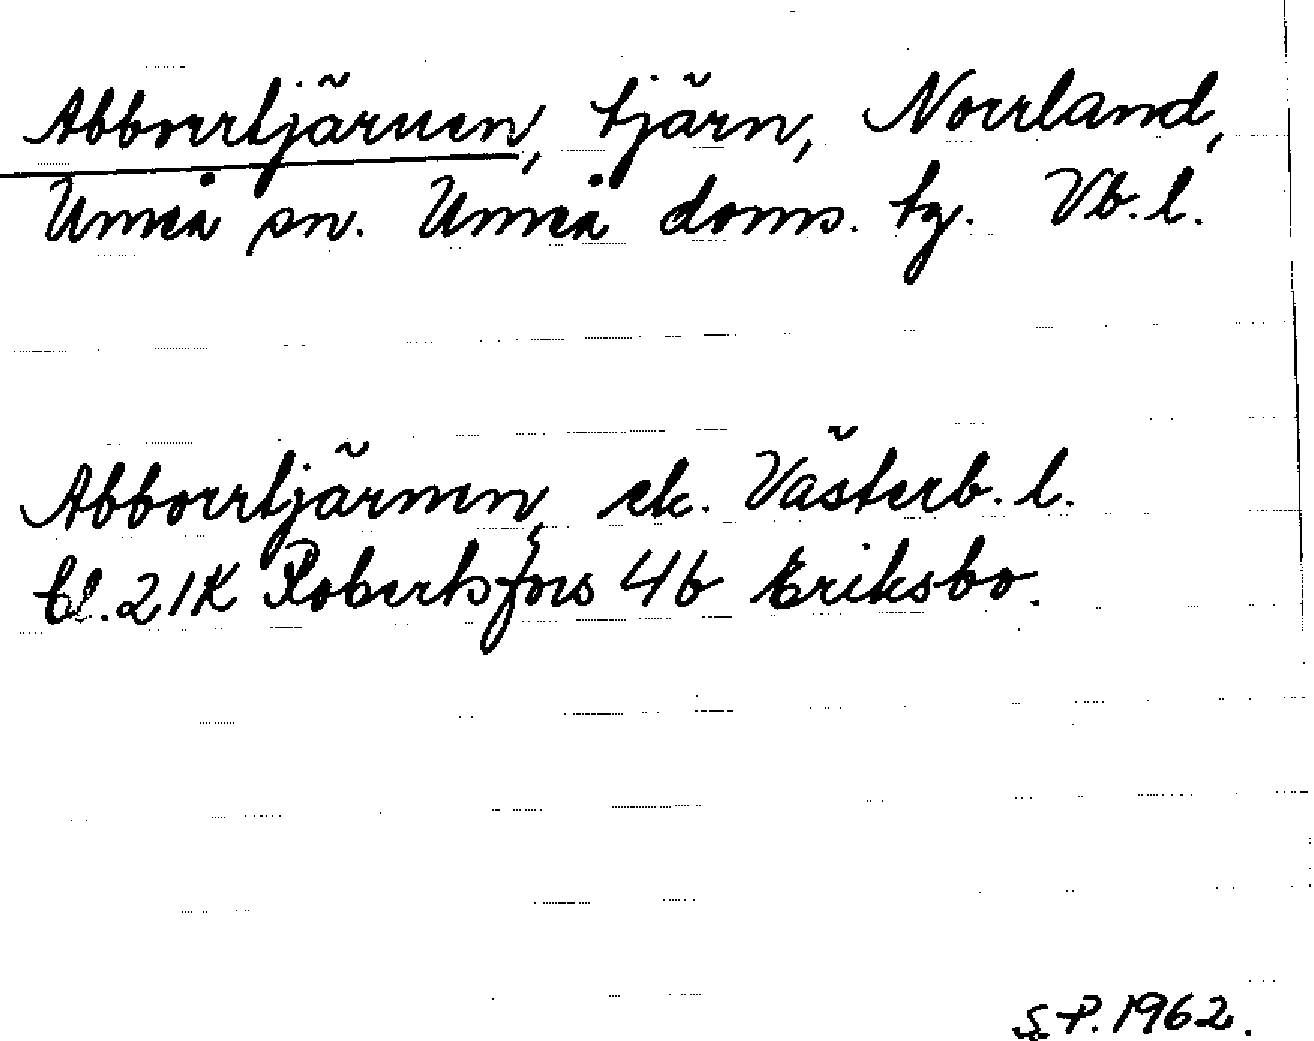 Abborrtjärnen, tjärn, Norrland,
Umeå sn. Umeå doms. tg. Vb.l.
Abborrtjärnen, ek. Västerb. l.
bl. 21K Robertsfors 4b Eriksbo.
S.P. 1962.